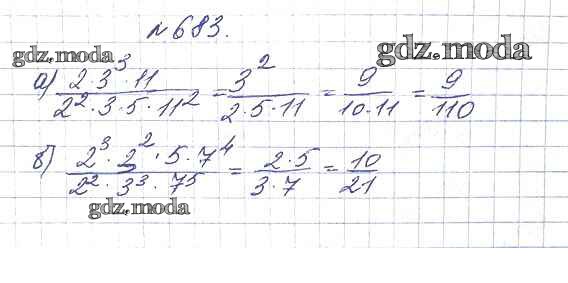 №683.
gdz.moda
gdz.moda
а) (2·3³·11)/(2²·3·5·11²) = 3²/(2·5·11) = 9/(10·11) = 9/110
б) (2³·3²·5·7⁴)/(2²·3³·7⁵) = (2·5)/(3·7) = 10/21
gdz.moda